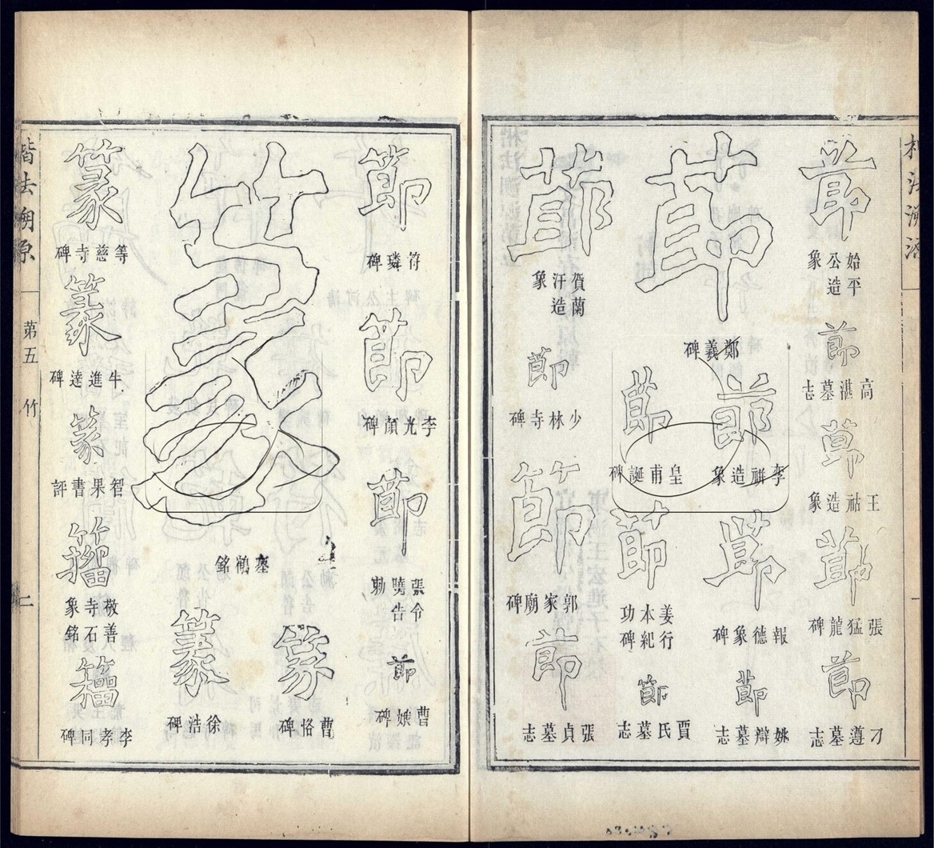 節
始平公造象
節
高湛墓志
節
王祜造象
節
張猛龍碑
節
刁遵墓志
節
鄭羲碑
節
李骿造象
節
皇甫誕碑
節
報德象碑
節
姜行本紀功碑
節
姚辯墓志
節
賈氏墓志
節
賀蘭汗造象
節
少林寺碑
節
郭家廟碑
節
張貞墓志
節
符璘碑
節
李光顏碑
節
張令曉告勅
節
曹娥碑
篆
瘞鶴銘
篆
曹恪碑
篆
徐浩碑
篆
等慈寺碑
篆
牛進達碑
篆
智果書評
籀
敬善寺石象銘
籀
李孝同碑
楷法溯源
第五 竹
二